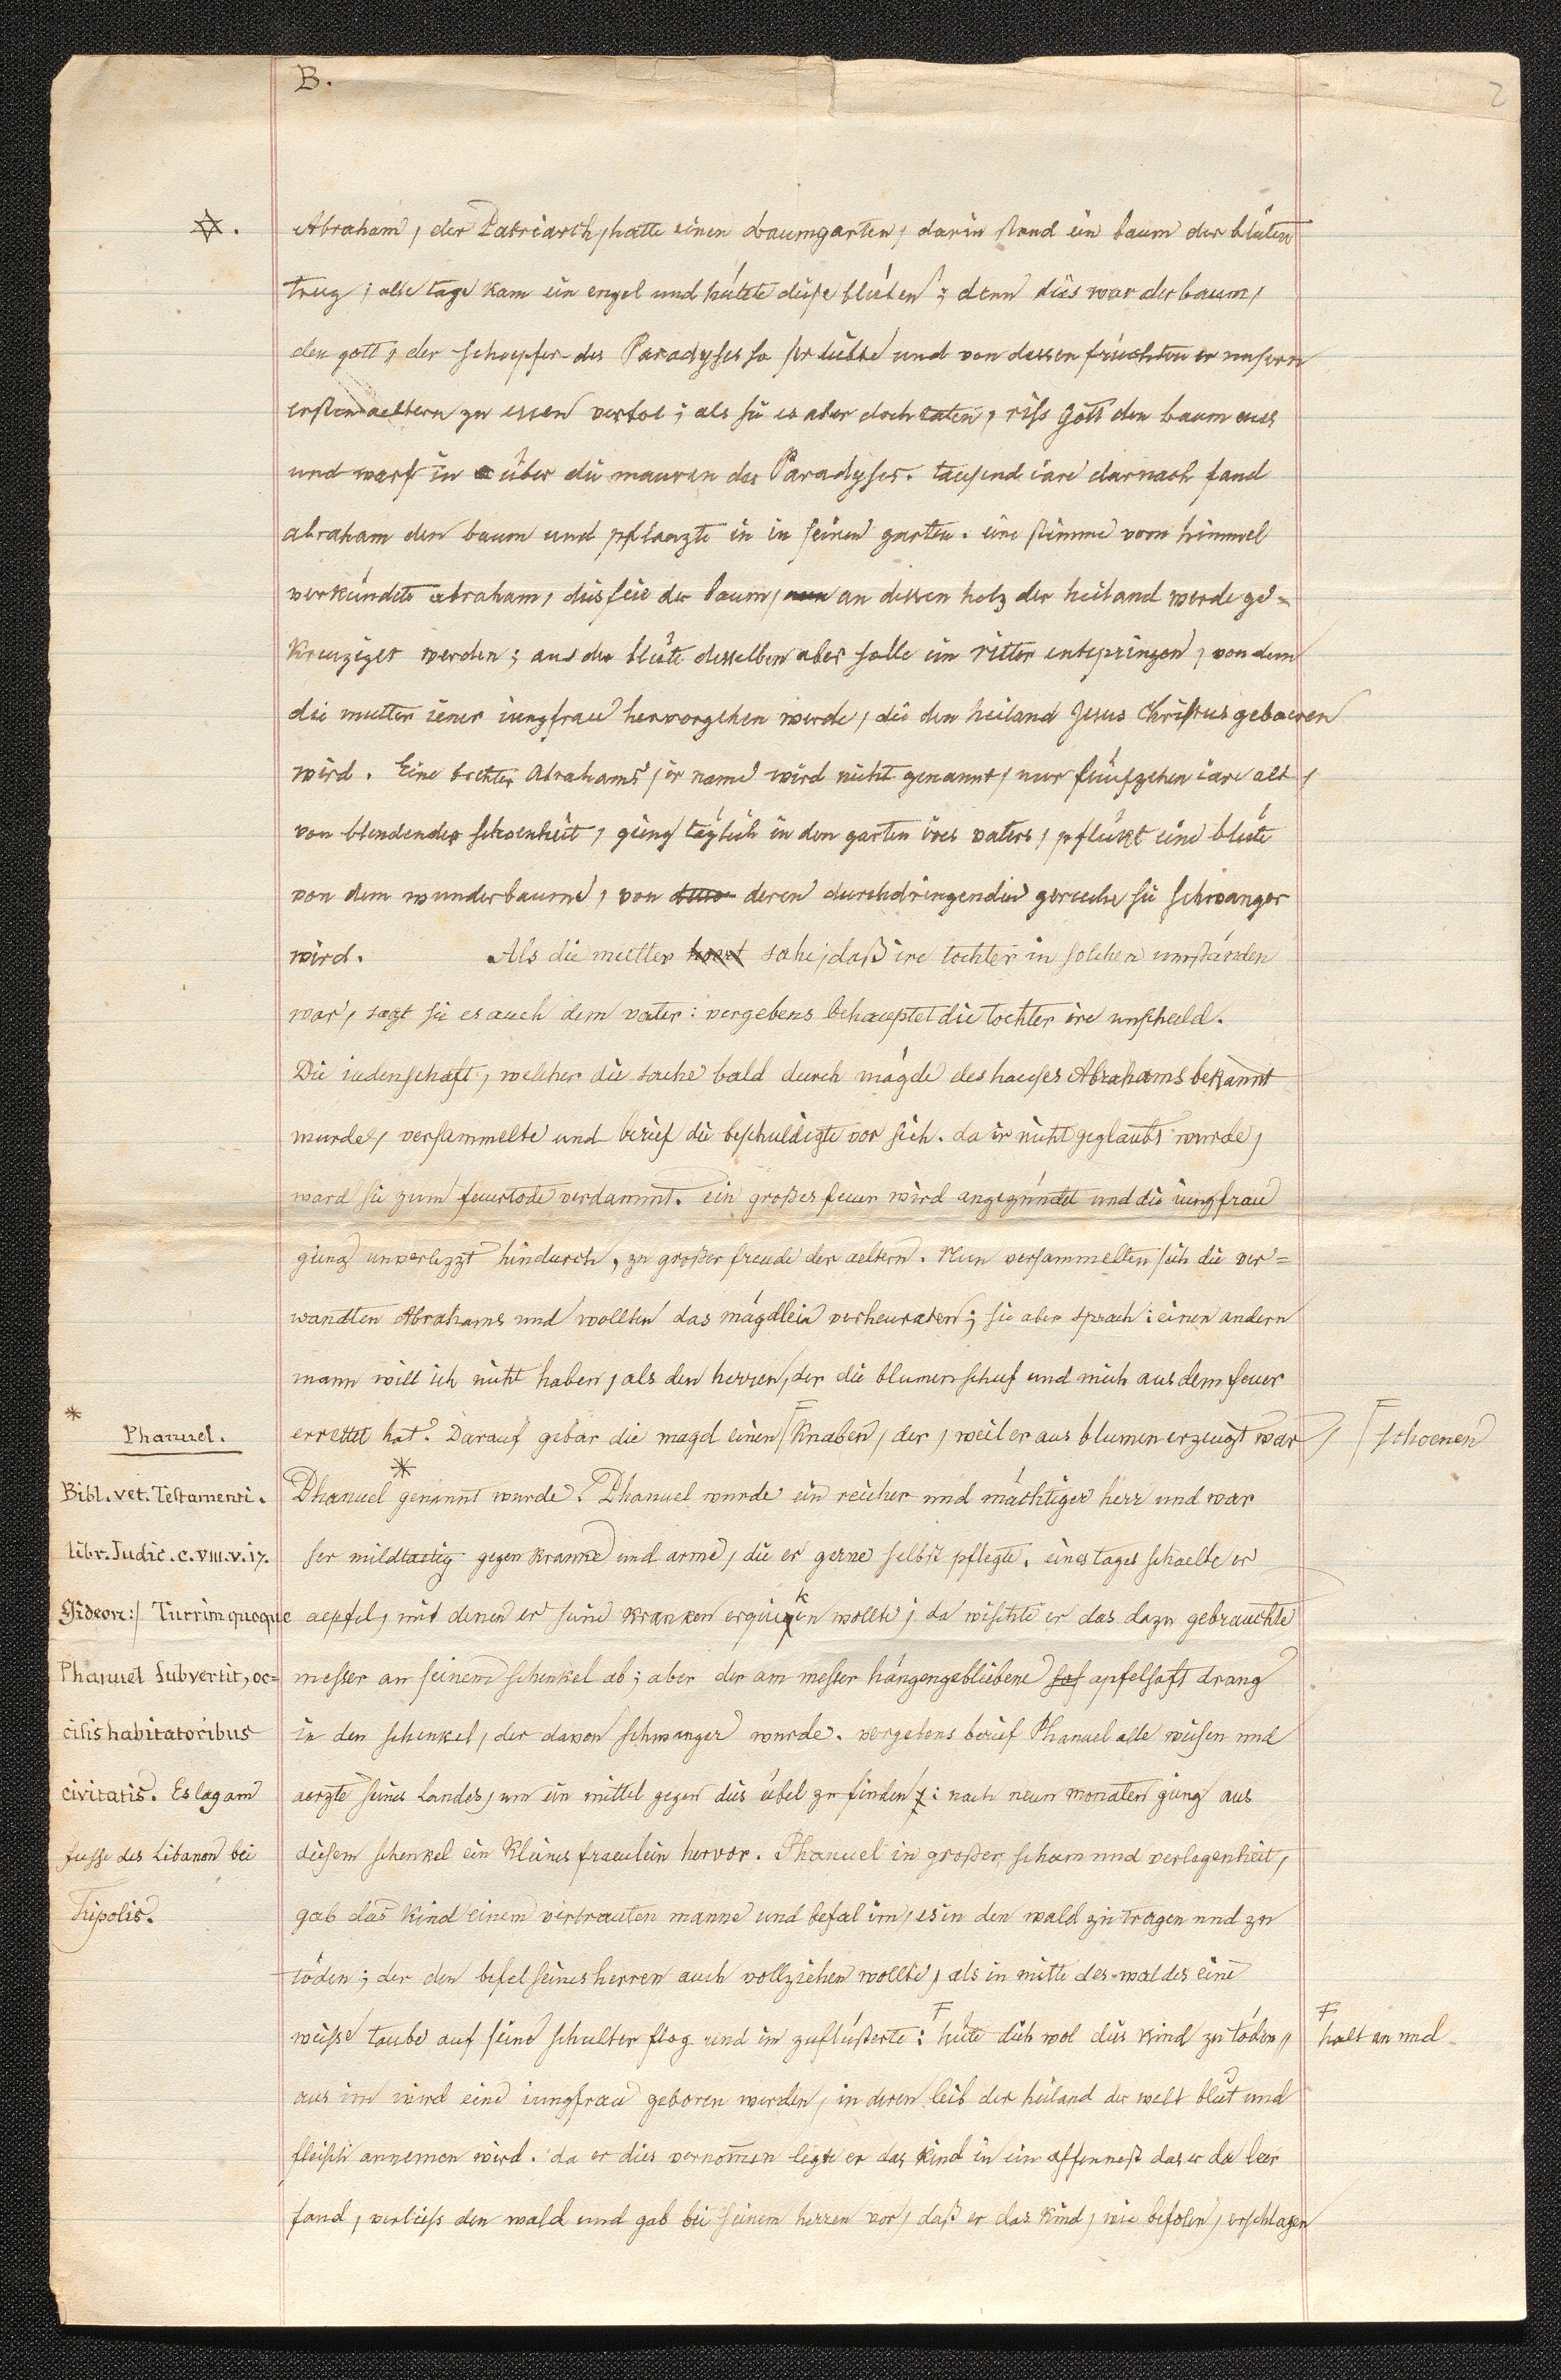 B.
2
✡. Abraham, der Patriarch, hatte einen baumgarten, darin stand ein baum der blüten
trug; alle tage kam ein engel und hütete diese blüten; denn dies war der baum,
den gott, der schoepfer des Paradyses so ser liebte und von dessen früchten er unsern
ersten aeltern zu essen verbot; als sie es aber doch taten, riss Gott den baum aus
und warf in über die mauren des Paradyses. tausend iare darnach fand
abraham den baum und pflanzte in in seinen garten. eine stimme vom himmel
verkündete abraham, dies seie der baum, an dessen holz der heiland werde ge=
kreuziget werden; aus der blüte desselben aber solle ein ritter entspringen, von dem
die mutter iener iungfrau hervorgehen werde, die den heiland Jesus Christus gebaeren
wird. Eine tochter Abrahams, ir name wird nicht genannt, nur fünfzehen iare alt,
von blendender schoenheit, gieng täglich in den garten ires vaters, pflükt eine blüte
von dem wunderbaume, von deren durchdringenden geruche sie schwanger
wird. Als die mutter sahe, daß ire tochter in solchen umständen
war, sagt sie es auch dem vater: vergebens behauptet die tochter ire unschuld.
Die iudenschaft, welcher die sache bald durch mägde des hauses Abrahams bekannt
wurde, versammelte und berief die beschuldigte vor sich. da ir nicht geglaubt wurde,
ward sie zum feuertode verdammt. ein großes feuer wird angezündet und die iungfrau
gieng unverlezzt hindurch, zu großer freude der aeltern. Nun versammelten sich die ver=
wandten Abrahams und wollten das mägdlein verheuraten; sie aber sprach: einen andern
mann will ich nicht haben, als den herren, der die blumen schuf und mich aus dem feuer
errettet hat. Darauf gebar die magd einen ꟻ Knaben, der, weil er aus blumen erzeugt war,
ꟻ schoenen
Phanuel * genannt wurde. Phanuel wurde ein reicher und mächtiger herr und war
ser mildtaetig gegen kranke und arme, die er gerne selbst pflegte. eines tages schaelte er
aepfel, mit denen er seine kranken erquiken wollte; da wischte er das dazu gebrauchte
messer an seinem schenkel ab; aber der am messer hängengebliebene apfelsaft drang
in den schenkel, der davon schwanger wurde. vergebens berief Phanuel alle weisen und
aerzte seines landes, um ein mittel gegen dies übel zu finden: nach neun monaten gieng aus
diesem schenkel ein kleines fraeulein hervor. Phanuel in großer scham und verlegenheit,
gab das kind einem vertrauten manne und befal im, es in den wald zu tragen und zu
töden; der den befel seines herren auch vollziehen wollte, als in mitte des waldes eine
weisse taube auf seine schulter flog und im zuflüsterte: F hüte dich wol dies kind zu töden,
F halt an und
aus im wird eine iungfrau geboren werden, in deren leib der heiland der welt blut und
fleisch annemen wird. da er dies vernomen legte er das kind in ein affennest das er da leer
fand, verliess den wald und gab bei seinem herren vor, daß er das kind, wie befolen, erschlagen
*
Phanuel.
Bibl. vet. Testamenti.
libr. Judic. c. VIII. v. 17.
Gideon:/ Turrim quoque
Phanuel subvertit, oc=
cisis habitatoribus
civitatis. Es lag am
fusse des Libanon bei
Tripolis.